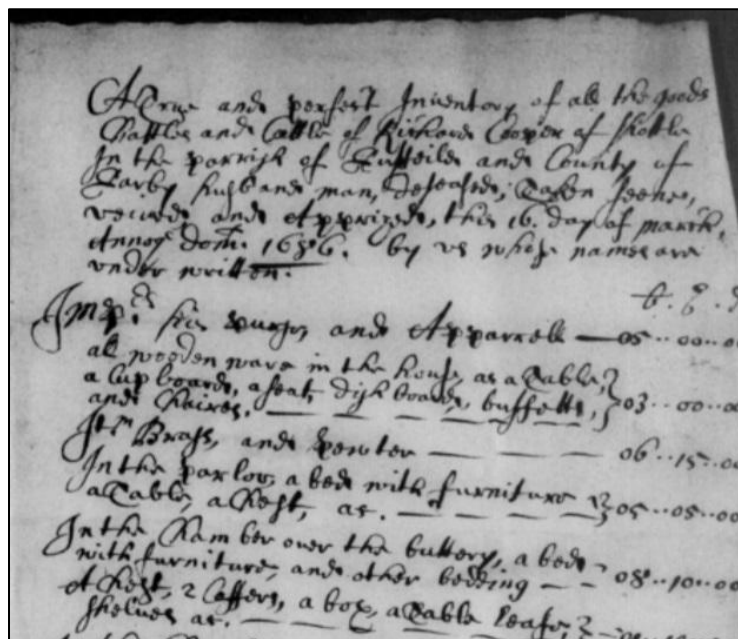 A True and perfect Inventory of all the goods
Chattles and Cattle of Richard Cooper of Shottle
In the parrish of Duffeild and County of
Darby husband man, deseased, Taken seene,
veiued and Apprized, this 16. day of march,
Annoq Dom. 1686. by vs whose names are
vnder written.
Imp: his purse, and Apparrell — 05..00..00
all wooden ware in the house, as a Table,
a Cupboard, a seat, dish board, buffetts,
and Chaires. — — — — — 03..00..00
Itm Brass, and pewter — — — 06..15..00
In the parlor, a bed with furniture
a Table, a Chest, &c. — — — 05..05..00
In the Chamber over the buttery, a bed
with furniture, and other bedding — — 08..10..00
A Chest, 2 Coffers, a box, a Table Leafe
shelues &c. — — —